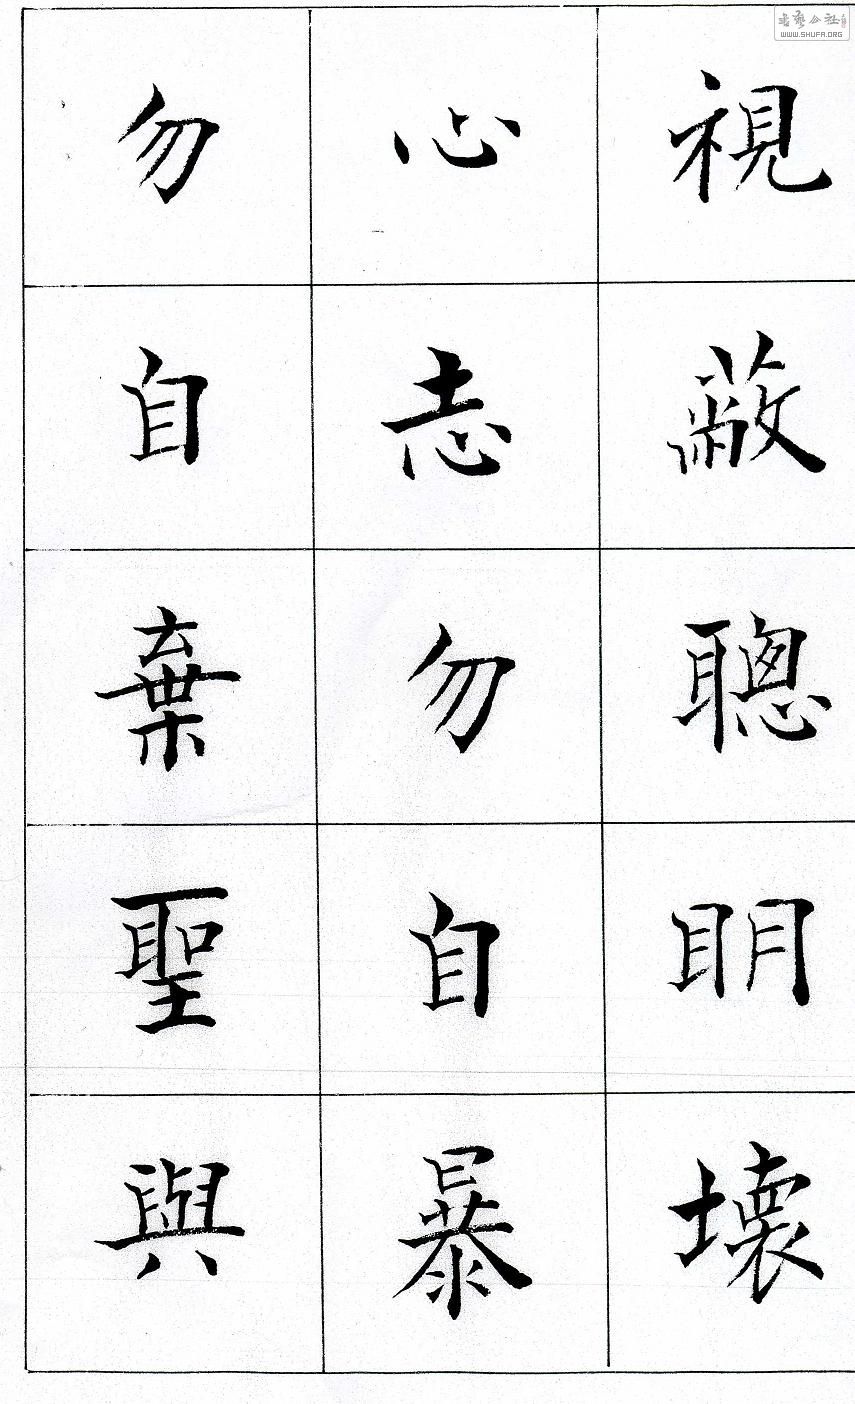 視蔽聰明壞
心志勿自暴
勿自棄聖與
WWW.SHUFA.ORG